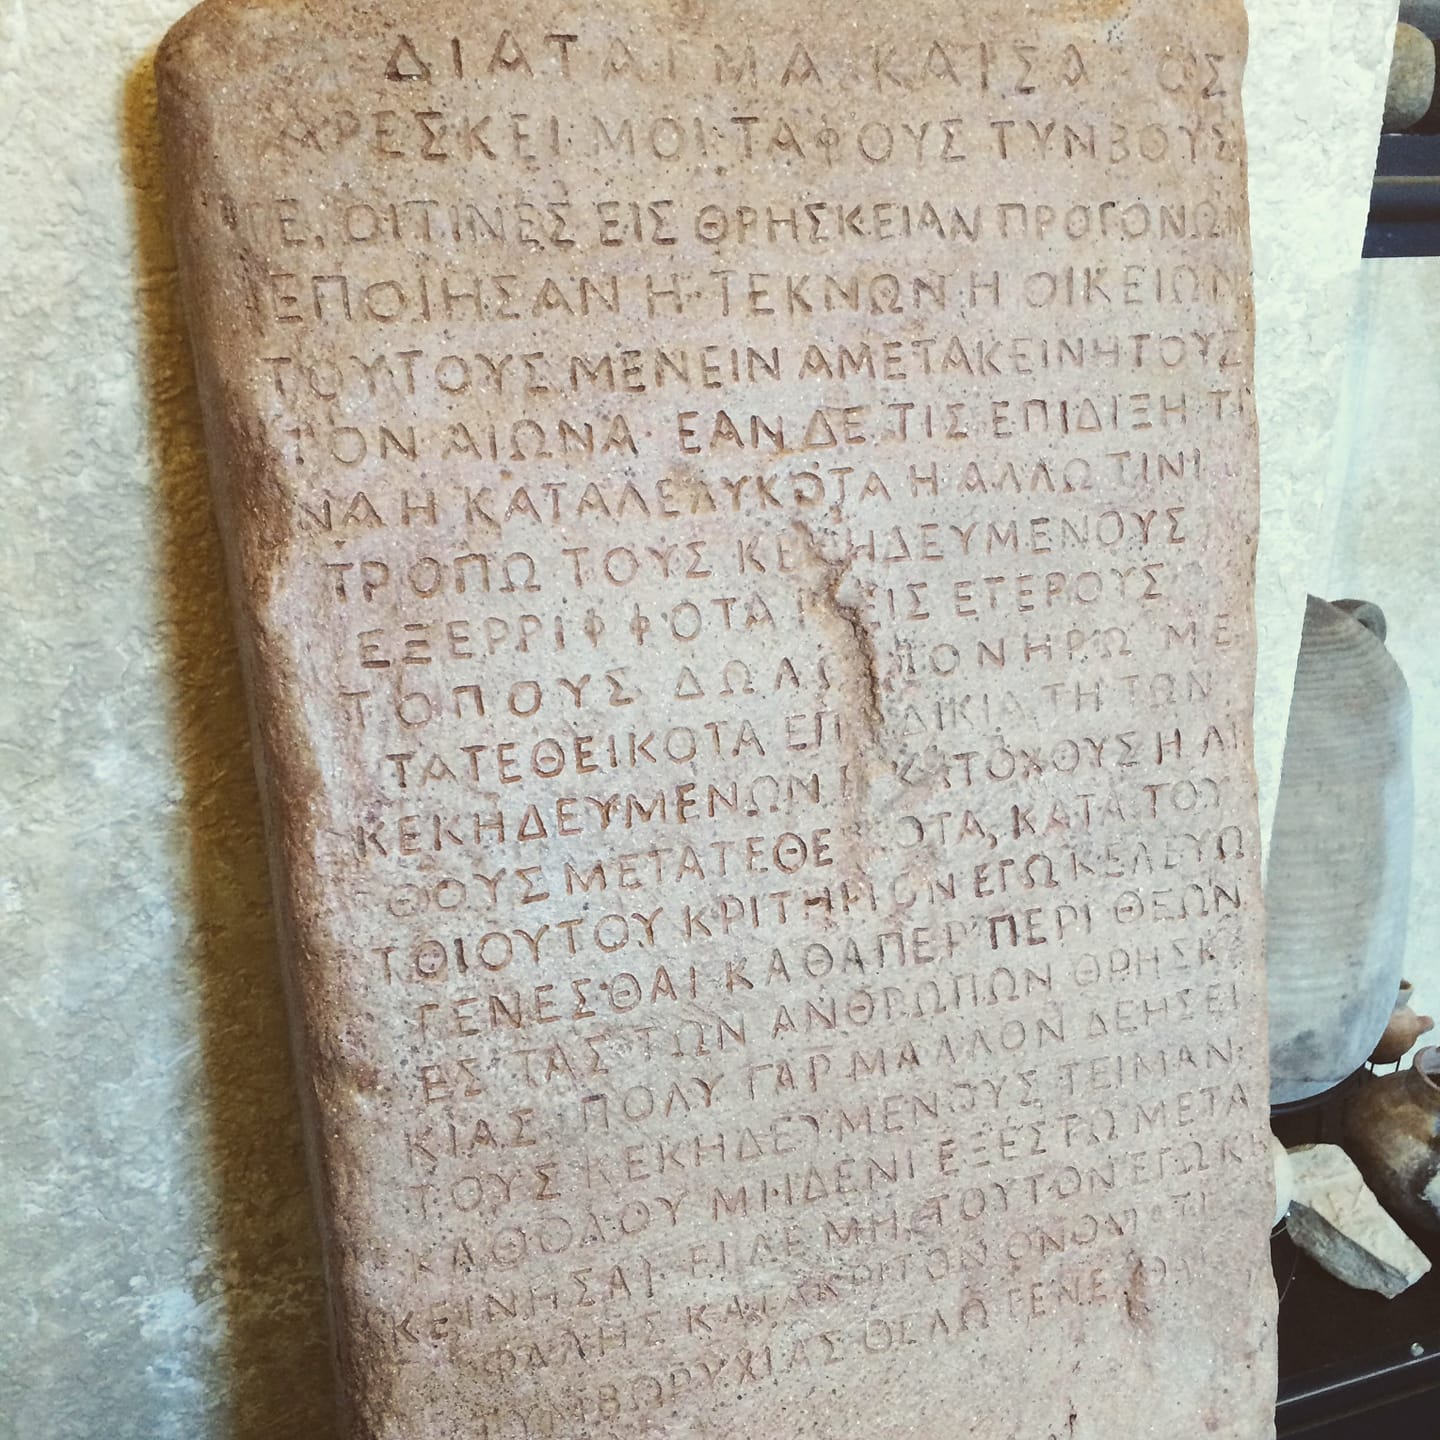 ΔΙΑΤΑΓΜΑ ΚΑΙΣΑ ΟΣ
ΑΡΕΣΚΕΙ ΜΟΙ ΤΑΦΟΥΣ ΤΥΝΒΟΥΣ
ΤΕ, ΟΙΤΙΝΕΣ ΕΙΣ ΘΡΗΣΚΕΙΑΝ ΠΡΟΓΟΝΩΝ
ΕΠΟΙΗΣΑΝ Η ΤΕΚΝΩΝ Η ΟΙΚΕΙΩΝ
ΤΟΥΤΟΥΣ ΜΕΝΕΙΝ ΑΜΕΤΑΚΕΙΝΗΤΟΥΣ
ΤΟΝ ΑΙΩΝΑ ΕΑΝ ΔΕ ΤΙΣ ΕΠΙΔΙΞΗ ΤΙ
ΝΑ Η ΚΑΤΑΛΕΛΥΚΟΤΑ Η ΑΛΛΩ ΤΙΝΙ
ΤΡΟΠΩ ΤΟΥΣ ΚΕΚΗΔΕΥΜΕΝΟΥΣ
ΕΞΕΡΡΙΦΦΟΤΑ ΕΙΣ ΕΤΕΡΟΥΣ
ΤΟΠΟΥΣ ΔΩΛΩ ΠΟΝΗΡΩ ΜΕ
ΤΑΤΕΘΕΙΚΟΤΑ ΕΠΙ ΑΔΙΚΙΑ ΤΗ ΤΩΝ
ΚΕΚΗΔΕΥΜΕΝΩΝ Η ΚΑΤΟΧΟΥΣ Η ΛΙ
ΘΟΥΣ ΜΕΤΑΤΕΘΕΙΚΟΤΑ, ΚΑΤΑ ΤΟΥ
ΤΟΙΟΥΤΟΥ ΚΡΙΤΗΡΙΟΝ ΕΓΩ ΚΕΛΕΥΩ
ΓΕΝΕΣΘΑΙ ΚΑΘΑΠΕΡ ΠΕΡΙ ΘΕΩΝ
ΕΣ ΤΑΣ ΤΩΝ ΑΝΘΡΩΠΩΝ ΘΡΗΣΚ
ΚΙΑΣ ΠΟΛΥ ΓΑΡ ΜΑΛΛΟΝ ΔΕΗΣΕΙ
ΤΟΥΣ ΚΕΚΗΔΕΥΜΕΝΟΥΣ ΤΕΙΜΑΝ
ΚΑΘΟΛΟΥ ΜΗΔΕΝΙ ΕΞΕΣΤΩ ΜΕΤΑ
ΚΕΙΝΗΣΑΙ ΕΙ ΔΕ ΜΗ ΤΟΥΤΟΝ ΕΓΩ ΚΕ
ΦΑΛΗΣ ΚΑΤΑΚΡΙΤΟΝ ΟΝΟΜΑΤΙ
ΤΥΜΒΩΡΥΧΙΑΣ ΘΕΛΩ ΓΕΝΕΣΘΑΙ